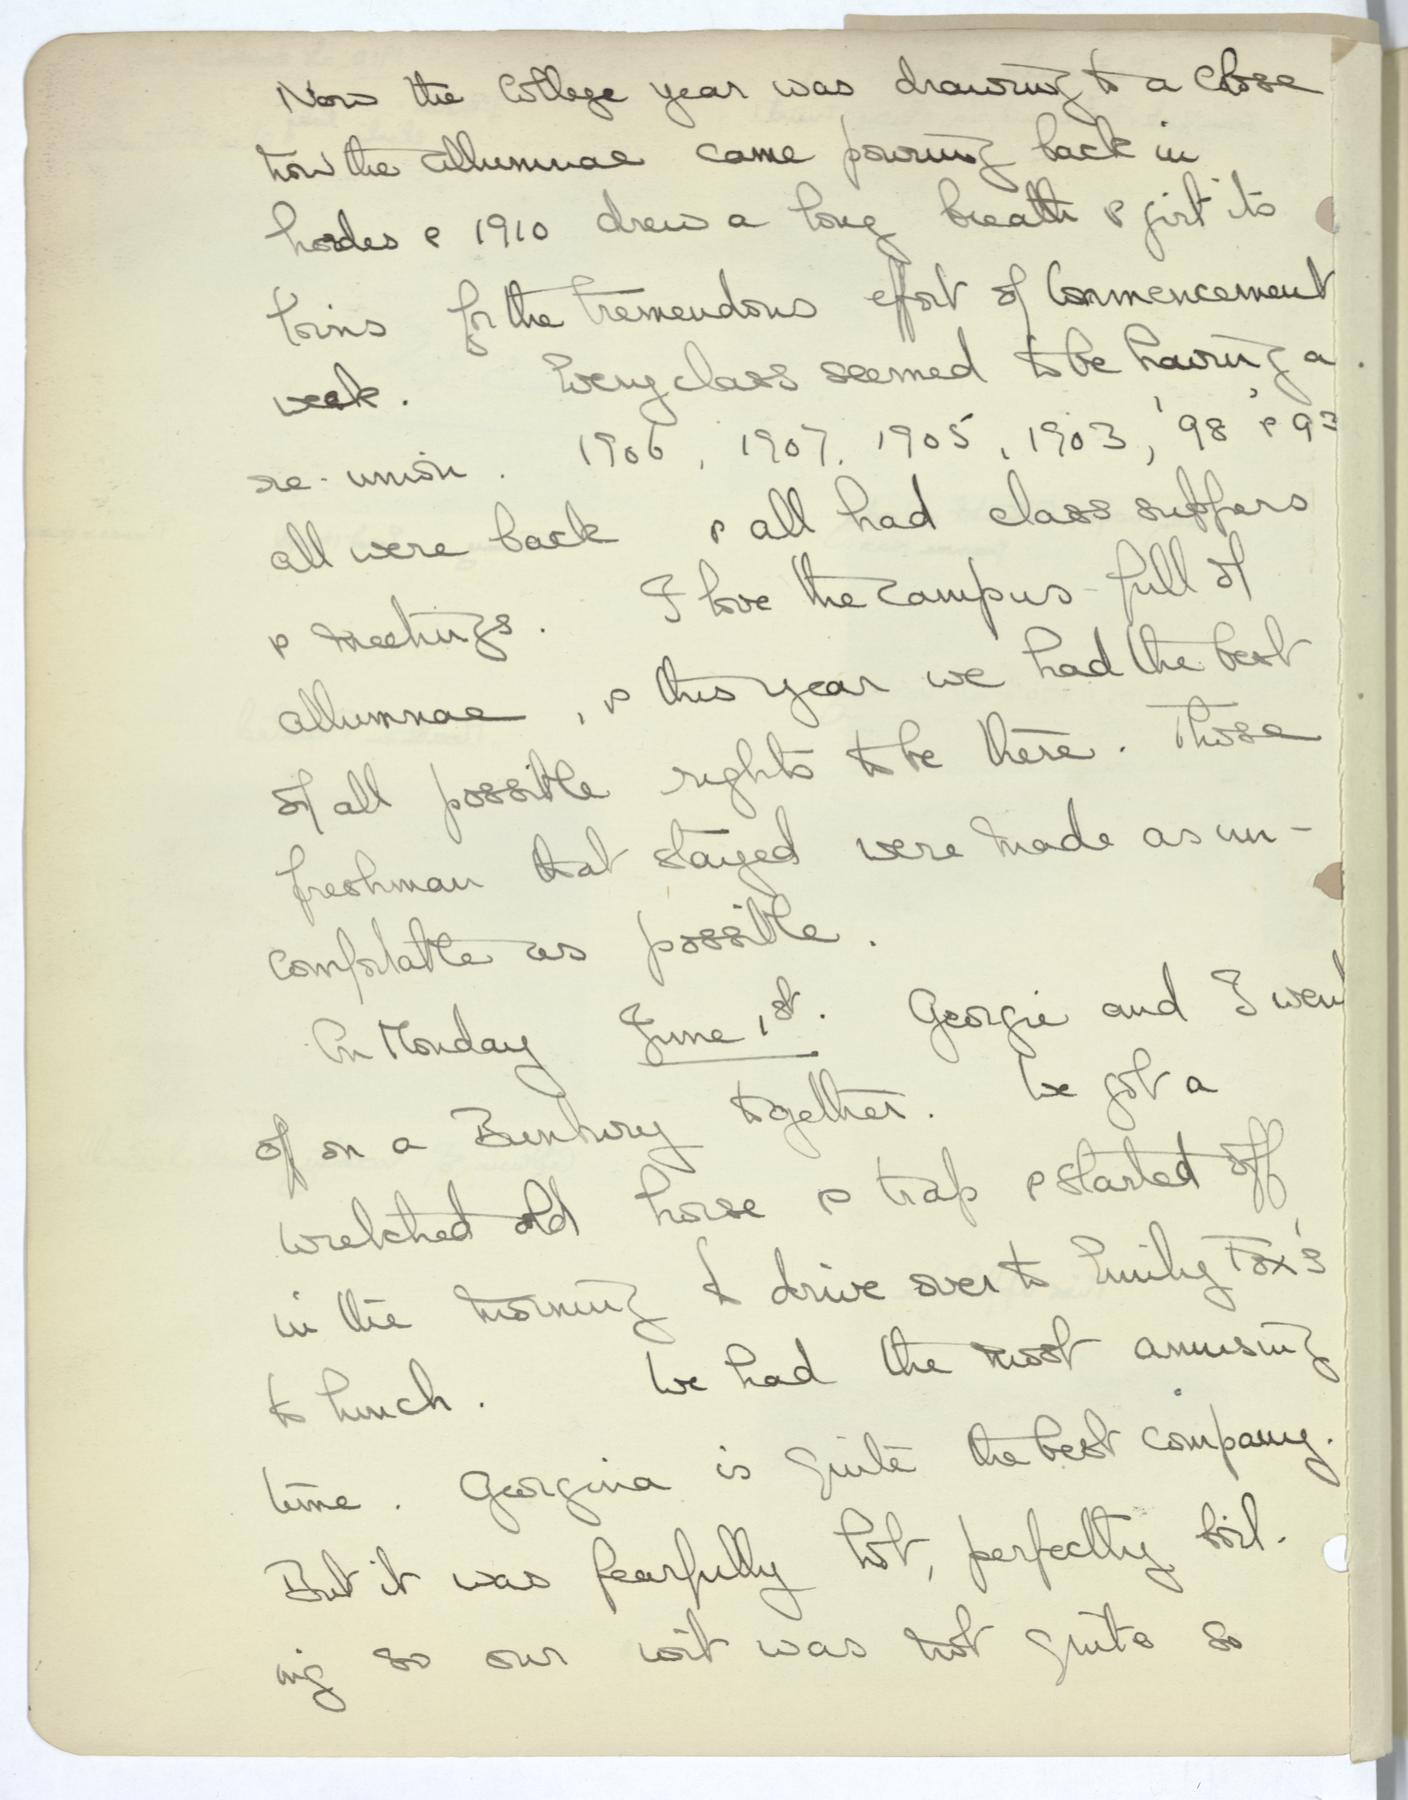 Now the College year was drawing to a close
now the allumnae came pouring back in
hordes & 1910 drew a long breath & girt its
loins for the tremendous effort of Commencement
week. Every class seemed to be having a
re-union. 1906, 1907, 1905, 1903, '98 & '93
all were back & all had class suppers
& meetings. I love the campus full of
allumnae, & this year we had the best
of all possible rights to be there. Those
freshman that stayed were made as un-
comfortable as possible.
On Monday June 1st. Georgie and I went
off on a Bunbury together. We got a
wretched old horse & trap & started off
in the morning to drive over to Emily Fox's
to lunch. We had the most amusing
time. Georgina is quite the best company.
But it was fearfully hot, perfectly boil-
ing so our wit was not quite so